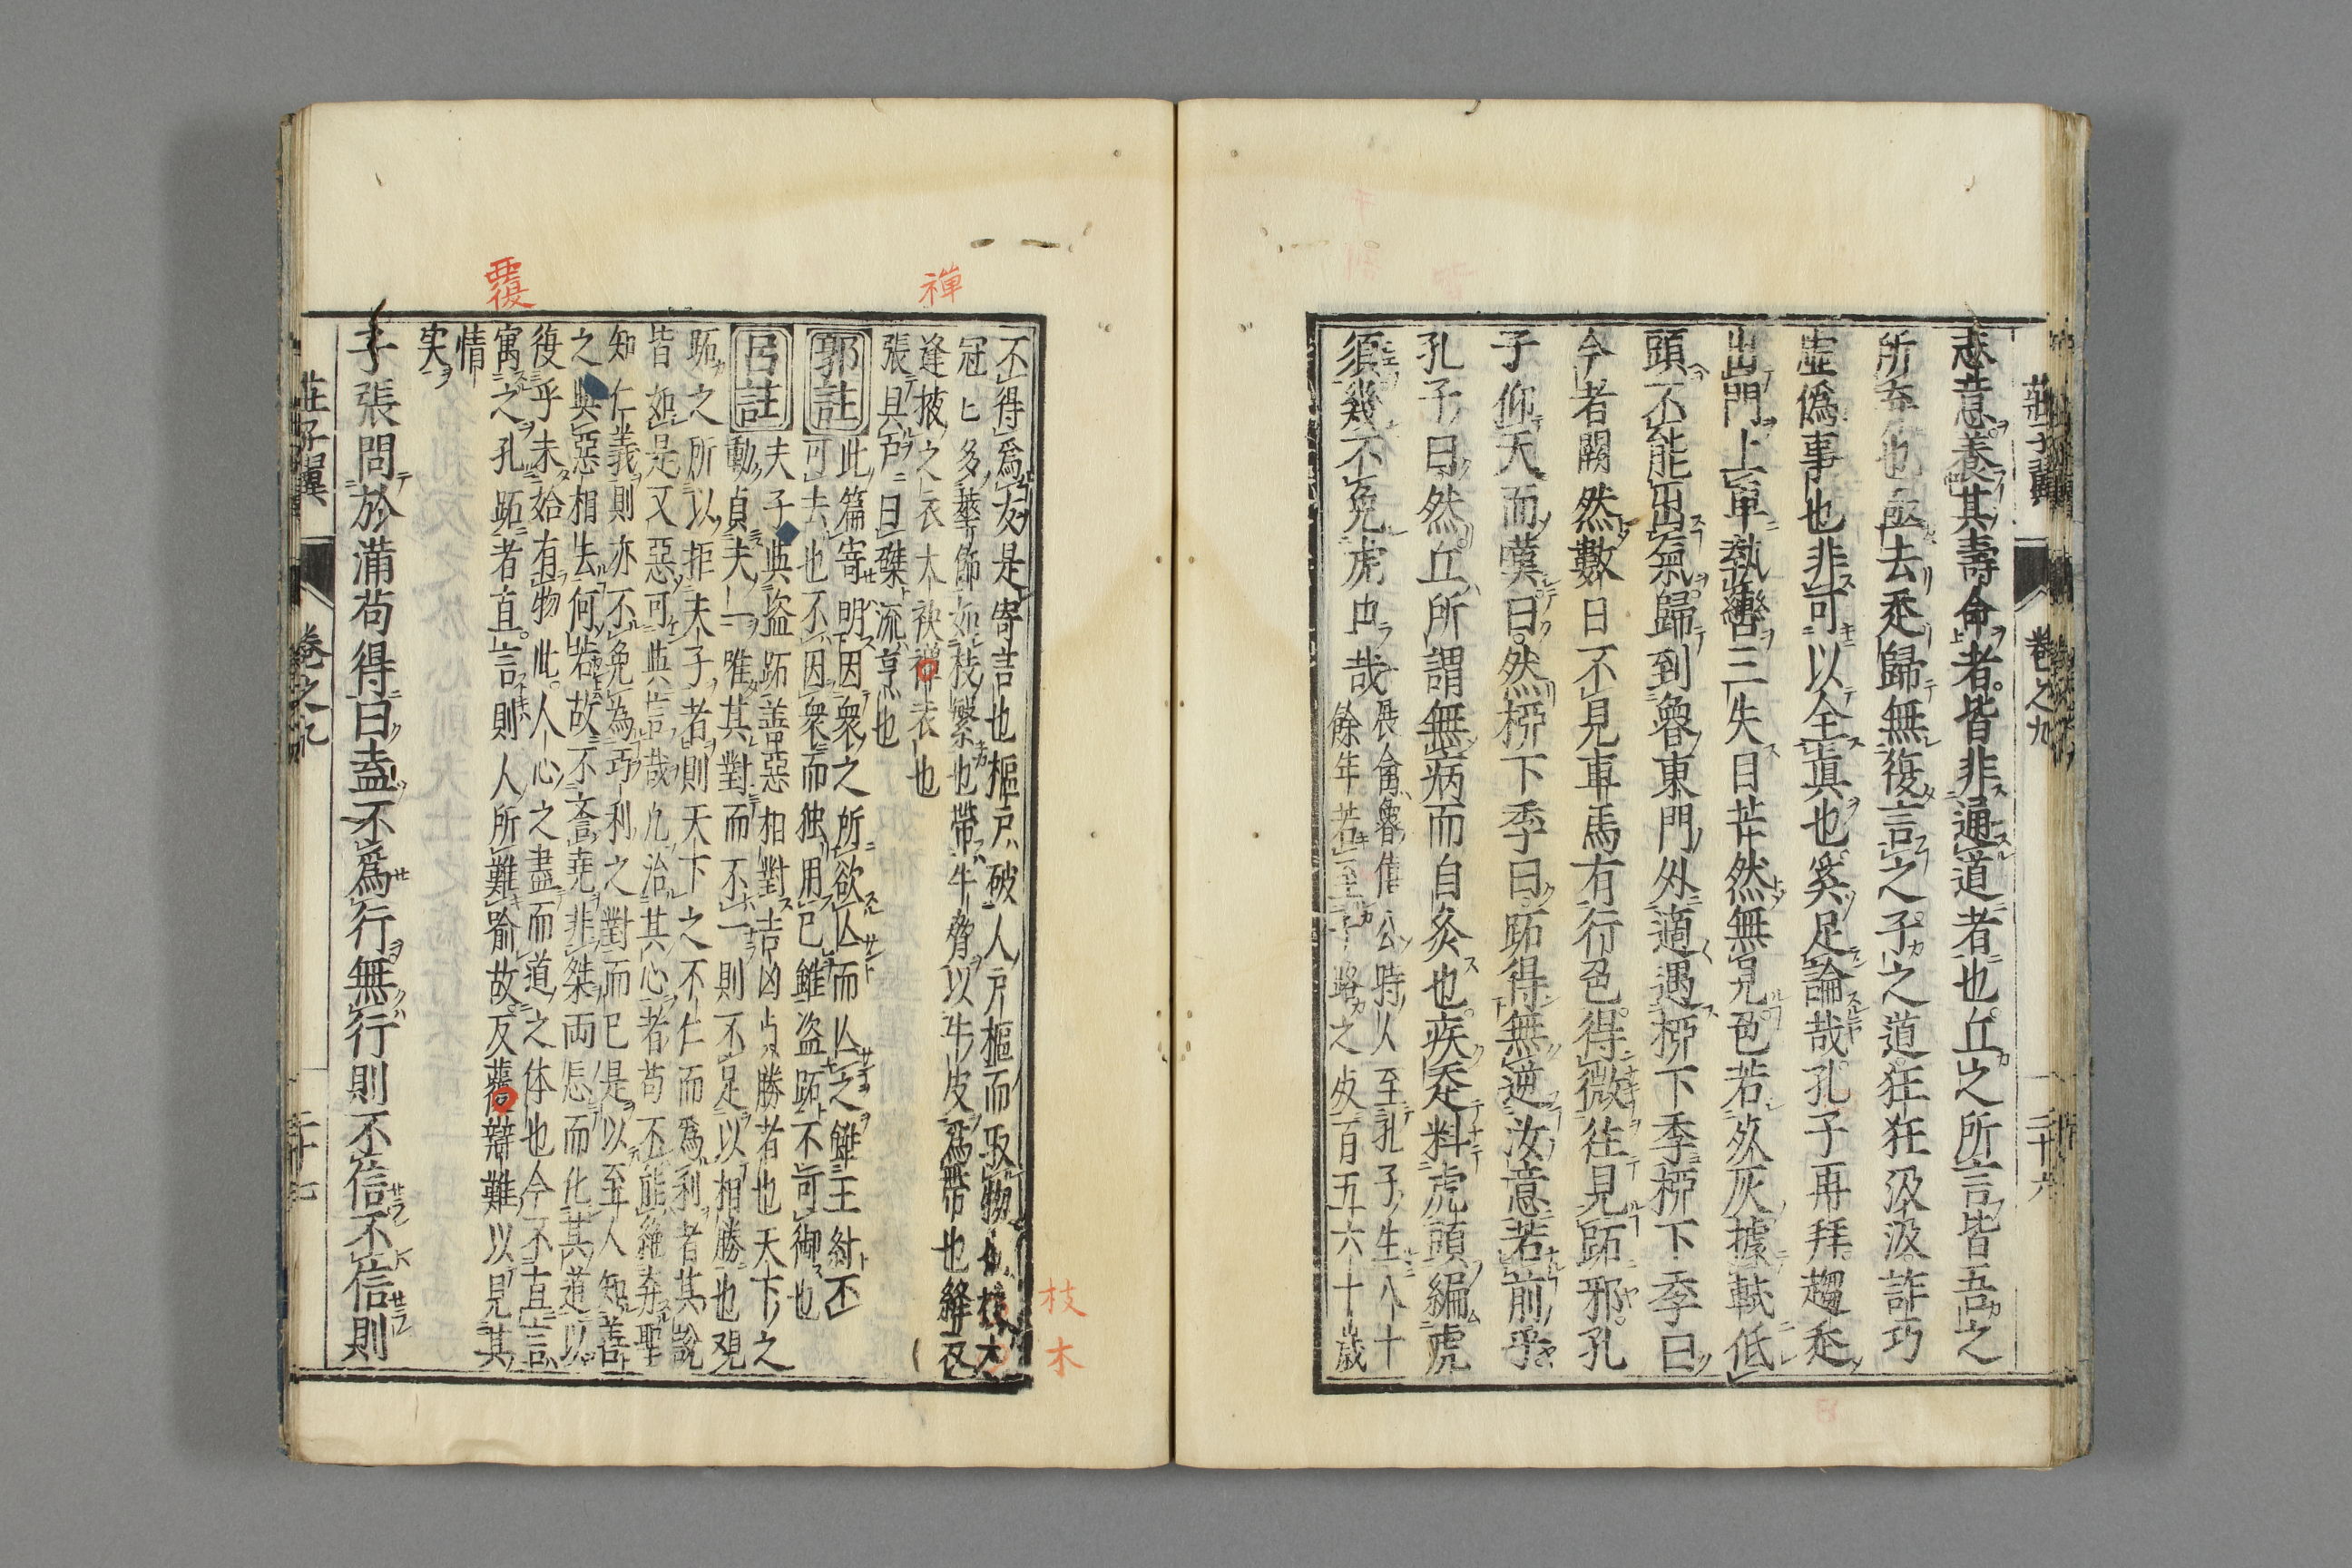 莊子翼 卷之九 二十六
志意養其壽命者皆非通道者也丘之所言皆吾之
所弃也亟去走歸無復言之子之道狂狂汲汲詐巧
虚偽事也非可以全眞也奚足論哉孔子再拜趨走
出門上車執轡三失目芒然無見色若死灰據軾低
頭不能出氣歸到魯東門外適遇柳下季柳下季曰
今者闕然數日不見車馬有行色得微往見跖邪孔
子仰天而嘆曰然柳下季曰跖得無逆汝意若前乎
孔子曰然丘所謂無病而自灸也疾走料虎頭編虎
須幾不免虎口哉
展禽魯僖公時人至孔子生八十
餘年若至子路之死百五六十歲
禪
枝木
覆
不得爲友是寄言也樞戸破人戸樞而取物也枝木
冠七多華飾如枝繁也帶牛脅以牛皮爲帶也縫衣
逢掖之衣大袂禪衣也
張具戸曰磔流烹也
郭註 此篇寄明因衆之所欲亾而亾之雖王紂不
可去也不因衆而独用已雖盗跖不可御也
呂註 夫子與盗跖善惡相對吉凶貞勝者也天下之
動貞夫一唯其對而不一則不足以相勝也覌
跖之所以拒夫子者則天下之不仁而爲利者其說
皆如是又惡可與言哉凡治其心者苟不能絶弃聖
知仁義則亦不免為巧利之對而已是以至人知善
之與惡相去何若故不誉堯非桀両忘而化其道以
復乎未始有物此人心之盡而道之体也今不直言
寓之孔跖者直言則人所難喻故反覆辯難以見其
情
実
子張問於滿苟得曰盍不爲行無行則不信不信則
莊子翼 卷之九 二十七